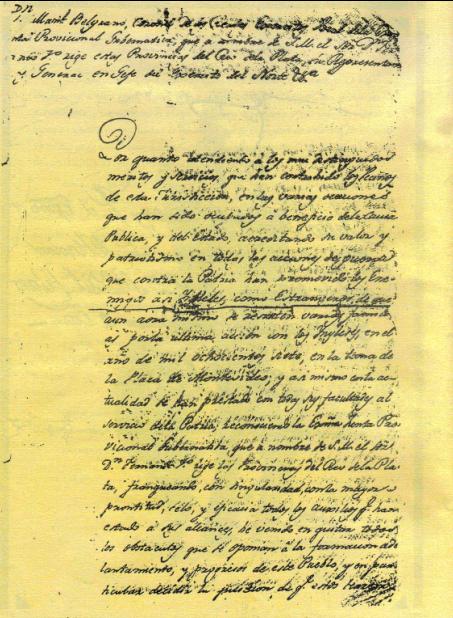 Dn
Manl Belgrano, Vocal de la
Provisional Gubernativa, que a nombre de S.M. el Sor Dn
nando 7o rige estas Provincias del Rio de la Plata, su Representante
y General en Gefe del Exercito del Norte &a
Por quanto atendiendo a los mui distinguidos
meritos y servicios, que han contrahido los
de esta Jurisdiccion, en las varias ocaciones
que han sido ocupados a beneficio de la Causa
Publica, y del Estado, acreditando su valor y
patriotismo en todas las acciones de guerra
que contra la Patria han promovido los Ene-
migos asi como Estrangeros, de que
aun aora
por la ultima accion con los Ingleses, en el
año de mil ochocientos siete, en la toma de
la Plaza de Montevideo; y asi mismo en la ac-
tualidad se han prestado con todas sus facultades al
servicio de la Patria, reconociendo la Exma Junta Pro-
vicional Gubernativa, que a nombre de S.M. el Sor
Dn Fernando 7o rige las Provincias del Rio de la Pla-
ta, franqueando, con singularidad, con la mayor
prontitud, celo, y eficacia todos los auxilios qe han
estado a sus alcances, he venido en quitar todos
los obstaculos que se oponian a la formacion, ade-
lantamiento, y progresos de este Pueblo, y en par-
ticular decidir la question de qe estos